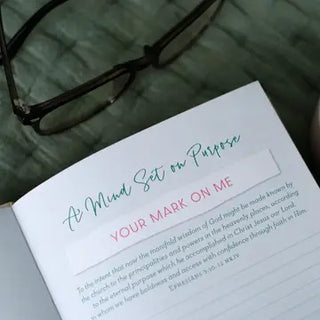 A Mind Set on Purpose
YOUR MARK ON ME
To the intent that now the manifold wisdom of God might be made known by
the church to the principalities and powers in the heavenly places, according
to the eternal purpose which he accomplished in Christ Jesus our Lord,
in whom we have boldness and access with confidence through faith in Him
EPHESIANS 3:10-12 NKJV